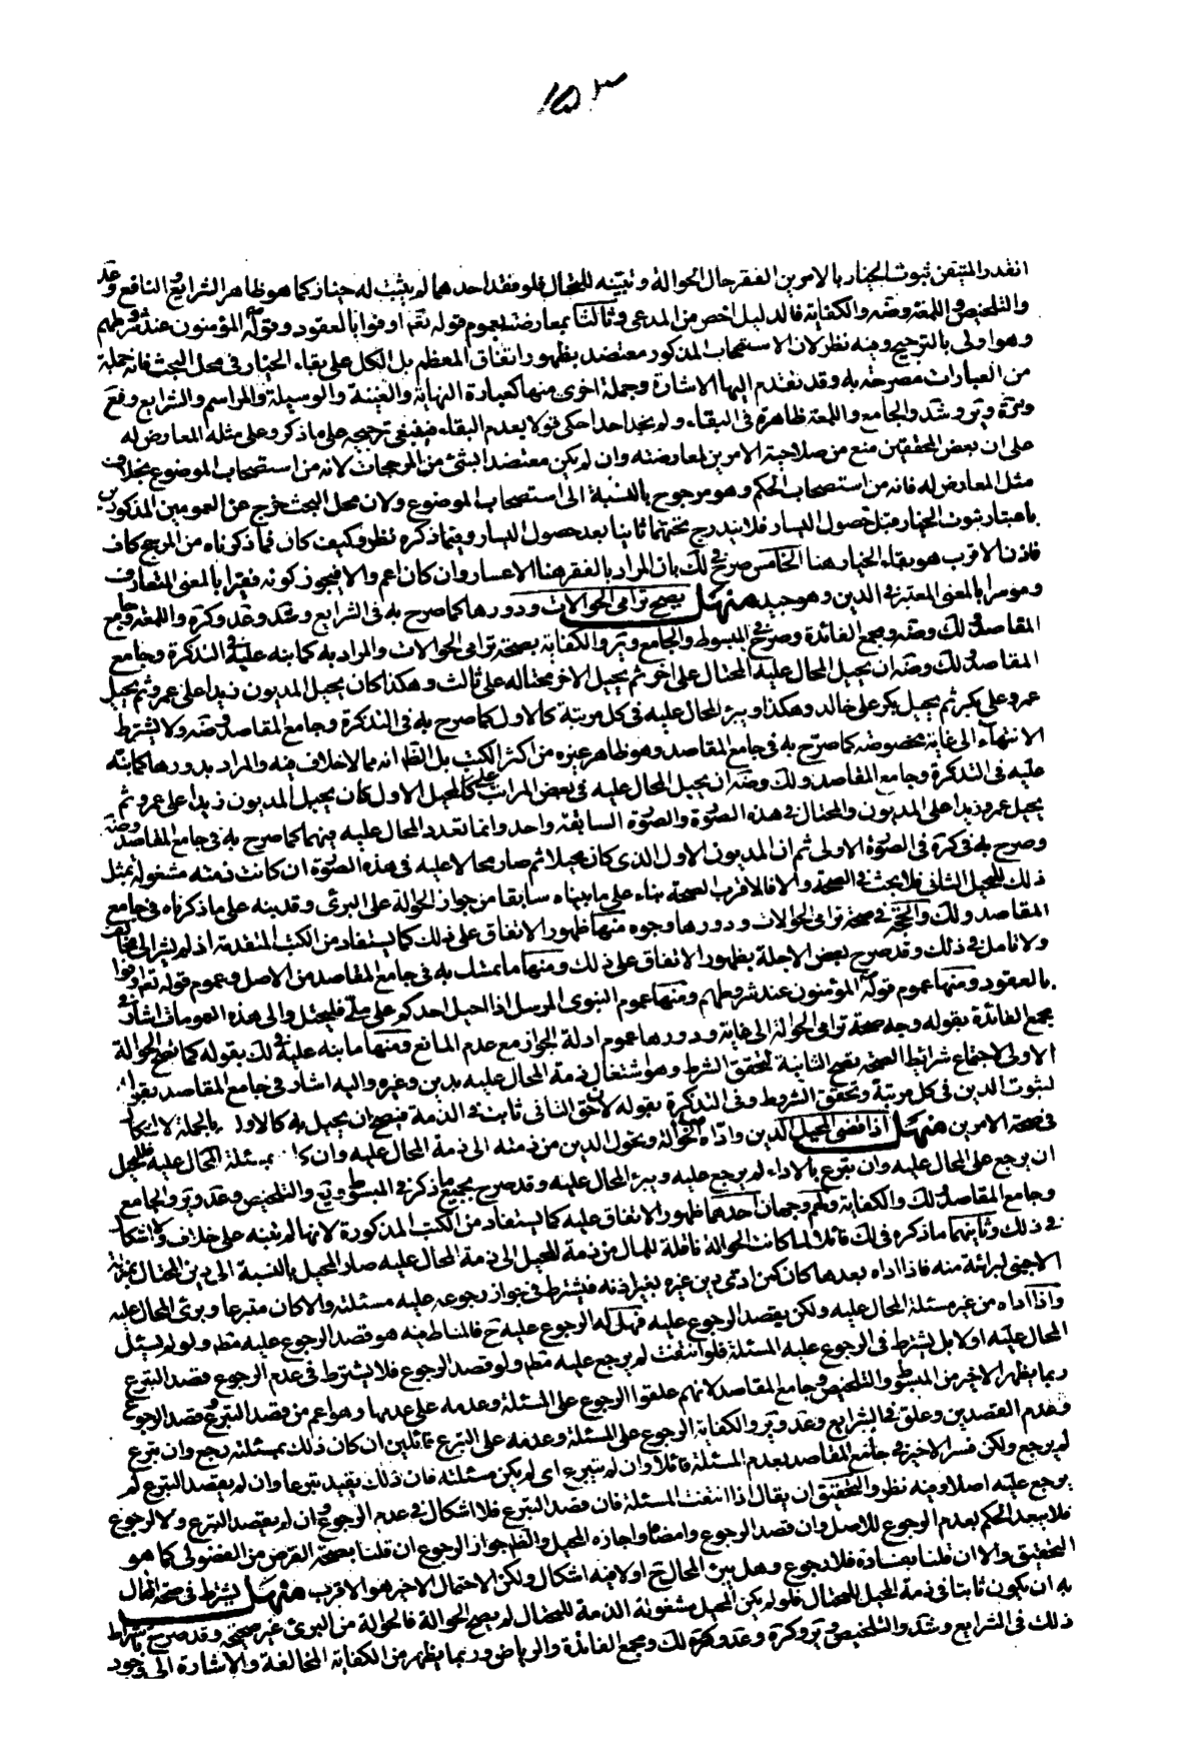 ١٥٣
القدر المتيقن ثبوت الخيار بالامرين الفقر حال الحوالة و تبينه للمحتال فلو فقد احدهما لم يثبت له خيار كما هو ظاهر الشرايع و النافع و عد
والتلخيص و اللمعة وضه والكفاية فالدليل اخص من المدعى و ثالثا بمعارضته بعموم قوله تعم اوفوا بالعقود و قوله المؤمنون عند شروطهم
وهو اولى بالترجيح وفيه نظر لان الاستصحاب المذكور معتضد بظهور اتفاق المعظم بل الكل على بقاء الخيار في محل البحث فانه جملة
من العبارات مصرحة به وقد تقدم اليها الاشارة وجملة اخرى منها كعبارة النهاية والغنية والوسيلة والمراسم والشرايع وفع
وكرة وير و شد والجامع واللمعة ظاهرة في البقاء ولم نجد احدا حكى قولا بعدم البقاء فينبغى ترجيحه على ما ذكر وعلى مثله المعارض له
على ان بعض المحققين منع من صلاحية الامرين لمعارضته وان لم يكن معتضدا بشئ من المرجحات لانه من استصحاب الموضوع بخلاف
مثل المعارض له فانه من استصحاب الحكم وهو مرجوح بالنسبة الى استصحاب الموضوع ولان محل البحث خرج عن العمومين المذكورين
باعتبار ثبوت الخيار قبل حصول اليسار فلا يندرج تحتهما ثانيا بعد حصول اليسار وفيما ذكره نظر وكيف كان فما ذكرناه من المرجح كاف
فاذن الاقرب هو بقاء الخيار هنا الخامس صرح في لك بان المراد بالفقر هنا الاعسار وان كان اعم والا فيجوز كونه فقيرا بالمعنى المتعارف
وموسرا بالمعنى المعتبر في الدين وهو جيد منهل يصح ترامى الحوالات ودورها كما صرح به فى الشرايع و شد وعد وكرة واللمعة وجامع
المقاصد ولك وضه ومجمع الفائدة وصرح في المبسوط والجامع وير والكفاية بصحة ترامى الحوالات والمراد به كما نبه عليه في التذكرة وجامع
المقاصد ولك وضه ان يحيل المحال عليه المحتال على اخر ثم يحيل الاخر محتاله على ثالث وهكذا كان يحيل المديون زيدا على عمرو ثم يحيل
عمرو على بكر ثم يحيل بكر على خالد وهكذا ويبرء المحال عليه في كل مرتبة كالاول كما صرح به فى التذكرة وجامع المقاصد وضه ولا يشترط
الانتهآء الى غاية مخصوصة كما صرح به في جامع المقاصد وهو ظاهر غيره من اكثر الكتب بل الظ انه مما لا خلاف فيه والمراد بدورها كما نبه
عليه فى التذكرة وجامع المقاصد ولك وضه ان يحيل المحال عليه في بعض المراتب على المحيل الاول كان يحيل المديون زيدا على عمرو ثم
يحيل عمرو زيدا على المديون والمحتال في هذه الصورة والصورة السابقة واحد وانما تعدد المحال عليه فيهما كما صرح به في جامع المقاصد وضه
وصرح به فى كرة فى الصورة الاولى ثم ان المديون الاول الذى كان محيلا ثم صار محالا عليه فى هذه الصورة ان كانت ذمته مشغولة بمثل
ذلك للمحيل الثانى فلا بحث في الصحة والا فالاقرب الصحة بناء على ما بيناه سابقا من جواز الحوالة على البرئ و قد ينبه على ما ذكرناه فى جامع
المقاصد ولك والحجة في صحة ترامى الحوالات و دورها وجوه منها ظهور الاتفاق على ذلك كما يستفاد من الكتب المتقدمة اذ لم يشر الى مخالف
ولا تامل في ذلك وقد صرح بعض الاجلة بظهور الاتفاق على ذلك ومنها ما تمسك به في جامع المقاصد من الاصل وعموم قوله تعم اوفوا
بالعقود ومنها عموم قوله المؤمنون عند شروطهم ومنها عموم النبوى المرسل اذا احيل احدكم على ملي فليحتل والى هذه العمومات اشار في
مجمع الفائدة بقوله وجه صحة ترامى الحوالة الى غاية و دورها عموم ادلة الجواز مع عدم المانع ومنها ما نبه عليه في لك بقوله كما تصح الحوالة
الاولى لاجتماع شرائط الصحة تصح الثانية لتحقق الشرط وهو اشتغال ذمة المحال عليه بدين وغيره واليه اشار فى جامع المقاصد بقوله
لثبوت الدين فى كل مرتبة وتحقق الشروط وفى التذكرة بقوله لان حق الثانى ثابت في الذمة فيصح ان يحيل به كالاول وبالجملة لا اشكال
فى صحة الامرين منهل اذا قضى المحيل الدين واداه بعد الحوالة وتحول الدين من ذمته الى ذمة المحال عليه وان كان بمسئلة المحال عليه فللمحيل
ان يرجع على المحال عليه وان تبرع بالاداء لم يرجع عليه ويبرء المحال عليه وقد صرح بجميع ما ذكر في المبسوط ويع والتلخيص وعد وير والجامع
وجامع المقاصد ولك والكفاية ولهم وجهان احدهما ظهور الاتفاق عليه كما يستفاد من الكتب المذكورة لانها لم تنبه على خلاف ولا اشكال
في ذلك وثانيهما ما ذكره في لك قائلا لما كانت الحوالة ناقلة للمال من ذمة المحيل الى ذمة المحال عليه صار المحيل بالنسبة الى دين المحتال بمنزلة
الاجنبى لبرائته منه فاذا اداه بعدها كان كمن ادى دين غيره بغير اذنه فيشترط في جواز رجوعه عليه مسئلته والا كان متبرعا وبرئ المحال عليه
واذا اداه من غير مسئلة المحال عليه ولكن بقصد الرجوع عليه فهل له الرجوع عليه ح فالمناط فيه هو قصد الرجوع عليه مط ولو لم يسئل
المحال عليه اولا بل يشترط فى الرجوع عليه المسئلة فلو انتفت لم يرجع عليه مط ولو قصد الرجوع فلا يشترط فى عدم الرجوع قصد التبرع
ربما يظهر الاخير من المبسوط والتلخيص وجامع المقاصد لانهم علقوا الرجوع على المسئلة وعدمه على عدمها وهو اعم من قصد التبرع وقصد الرجوع
وعدم القصدين وعلق في الشرايع وعد وير والكفاية الرجوع على المسئلة وعدمه على التبرع قائلين ان كان ذلك بمسئلته رجع وان تبرع
لم يرجع ولكن فسر الاخير في جامع المقاصد بعدم المسئلة قائلا وان لم يتبرع اى لم يكن مسئلته فان ذلك يفيد تبرعا وان لم يقصد التبرع لم
يرجع عليه اصلا وفيه نظر والتحقيق ان يقال اذا انتفت المسئلة فان قصد التبرع فلا اشكال في عدم الرجوع وان لم يقصد التبرع ولا الرجوع
فلا يبعد الحكم بعدم الرجوع للاصل وان قصد الرجوع وامضاه واجازه المحيل والظ جواز الرجوع ان قلنا بصحة القرض من الفضولى كما هو
التحقيق والا ان قلنا بفساده فلا رجوع وهل بين المحال ح اولا فيه اشكال ولكن الاحتمال الاخير هو الاقرب منهل يشترط فى صحة المال
به ان يكون ثابتا فى ذمة المحيل للمحتال فلو لم يكن المحيل مشغولة الذمة للمحتال لم يصح الحوالة فالحوالة من البرئ غير صحيحة وقد صرح باشتراط
ذلك فى الشرايع و شد والتلخيص وير وكرة وعد وكرة لك ومجمع الفائدة والرياض وربما يظهر من الكفاية المخالفة والاشارة الى وجود